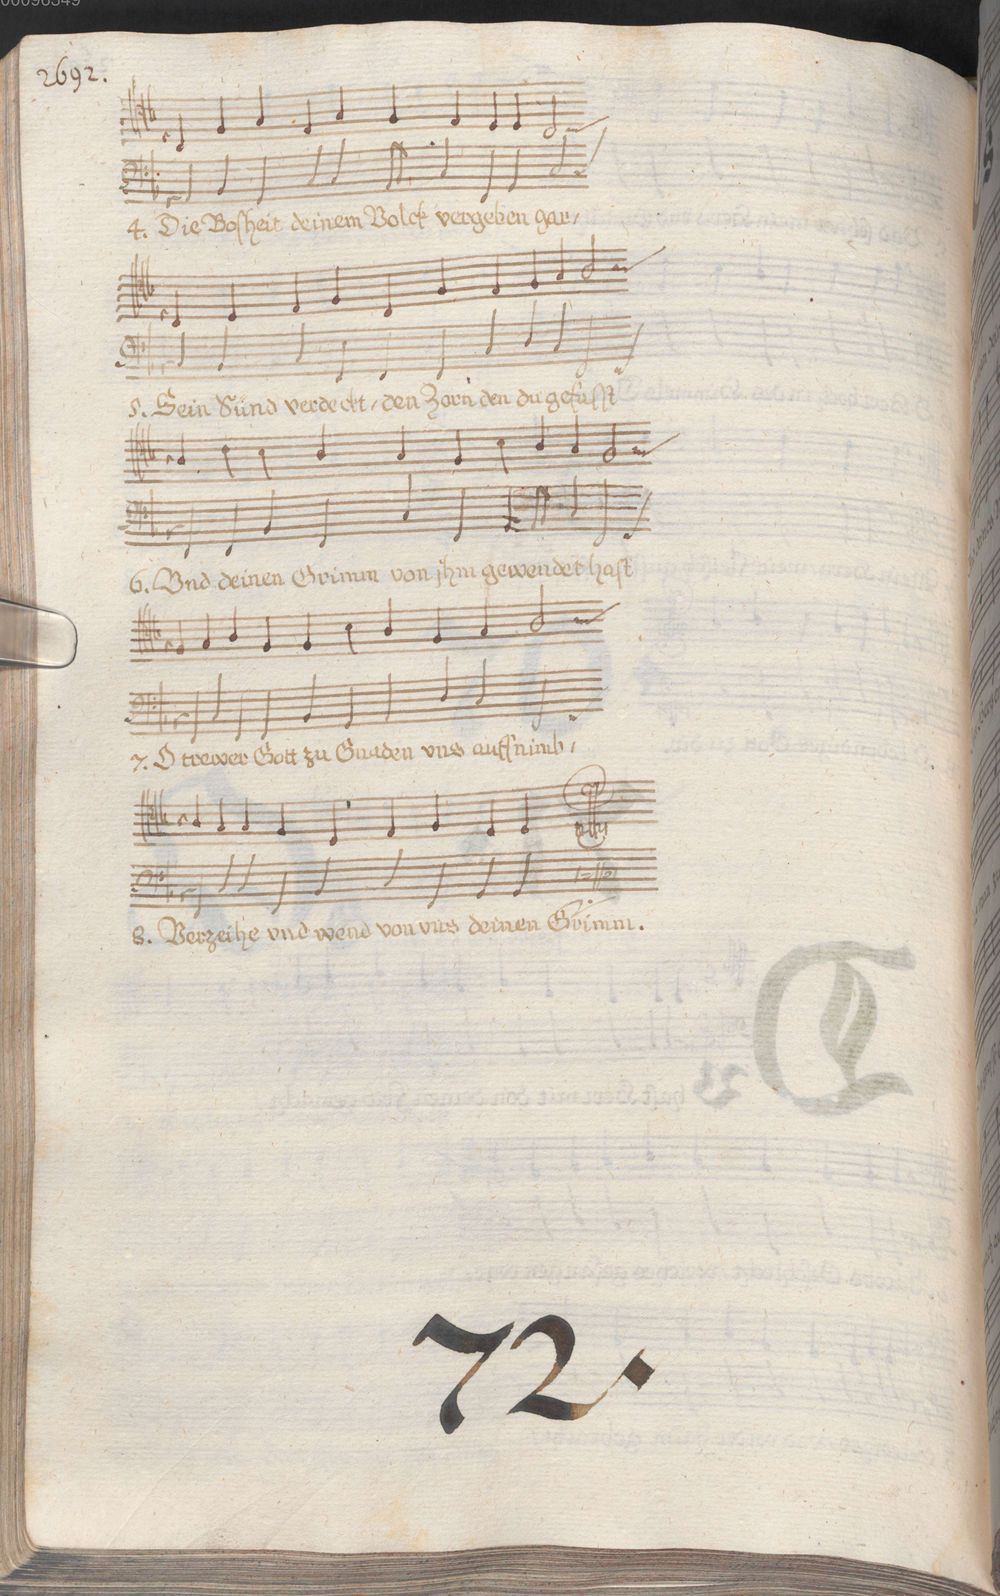 00096349
2692.
4. Die Bosheit deinem Volck vergeben gar,
5. Sein Sünd verdeckt, den Zorn den du gefasst
6. Vnd deinen Grimm von jhm gewendet hast
7. O trewer Gott zu Gnaden vns auffnimb,
8. Verzeihe vnd wend von vns deinen Grimm.
72.